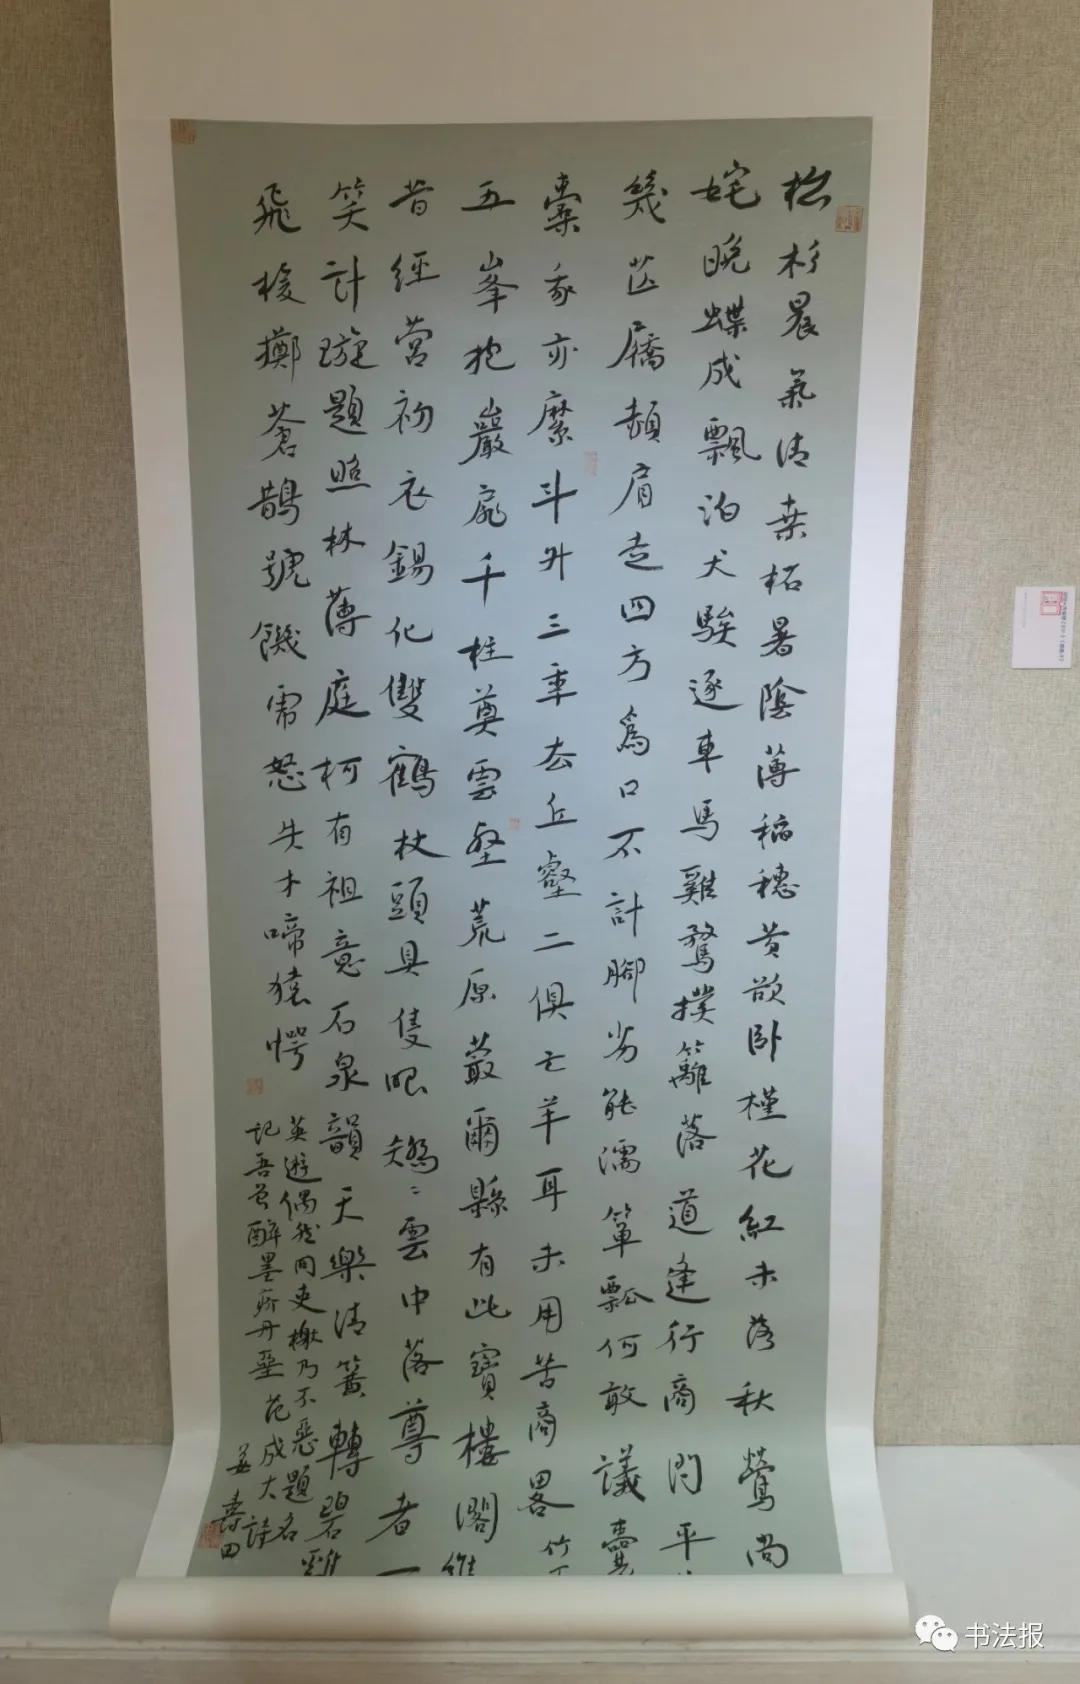 松杉晨氣清桑柘暑陰薄稻穗黄欲卧槿花紅未落秋鶯尚
姹晚蝶成飄泊犬騃逐車馬雞驚撲籬落道逢行商問平
幾苙屩頳肩走四方為口不計腳劣能濡簞瓢何敢議囊
橐我亦縻斗升三年去丘壑二俱亡羊耳未用苦商畧竹
五峯抱巖扉千柱奠雲壑荒原蕞爾縣有此寶樓閣維
昔經營初衣錫化雙鶴杖頭具隻眼矯矯雲中落尊者一
笑計璇題照林薄庭柯有祖意石泉韻天樂清簧轉碧雞
飛梭擲蒼鵲號饑雷怒失木啼猿愕
英遊偶然同吏檄乃不惡題名
記吾曾醉墨疥丹堊范成大詩
姜壽田
书法报